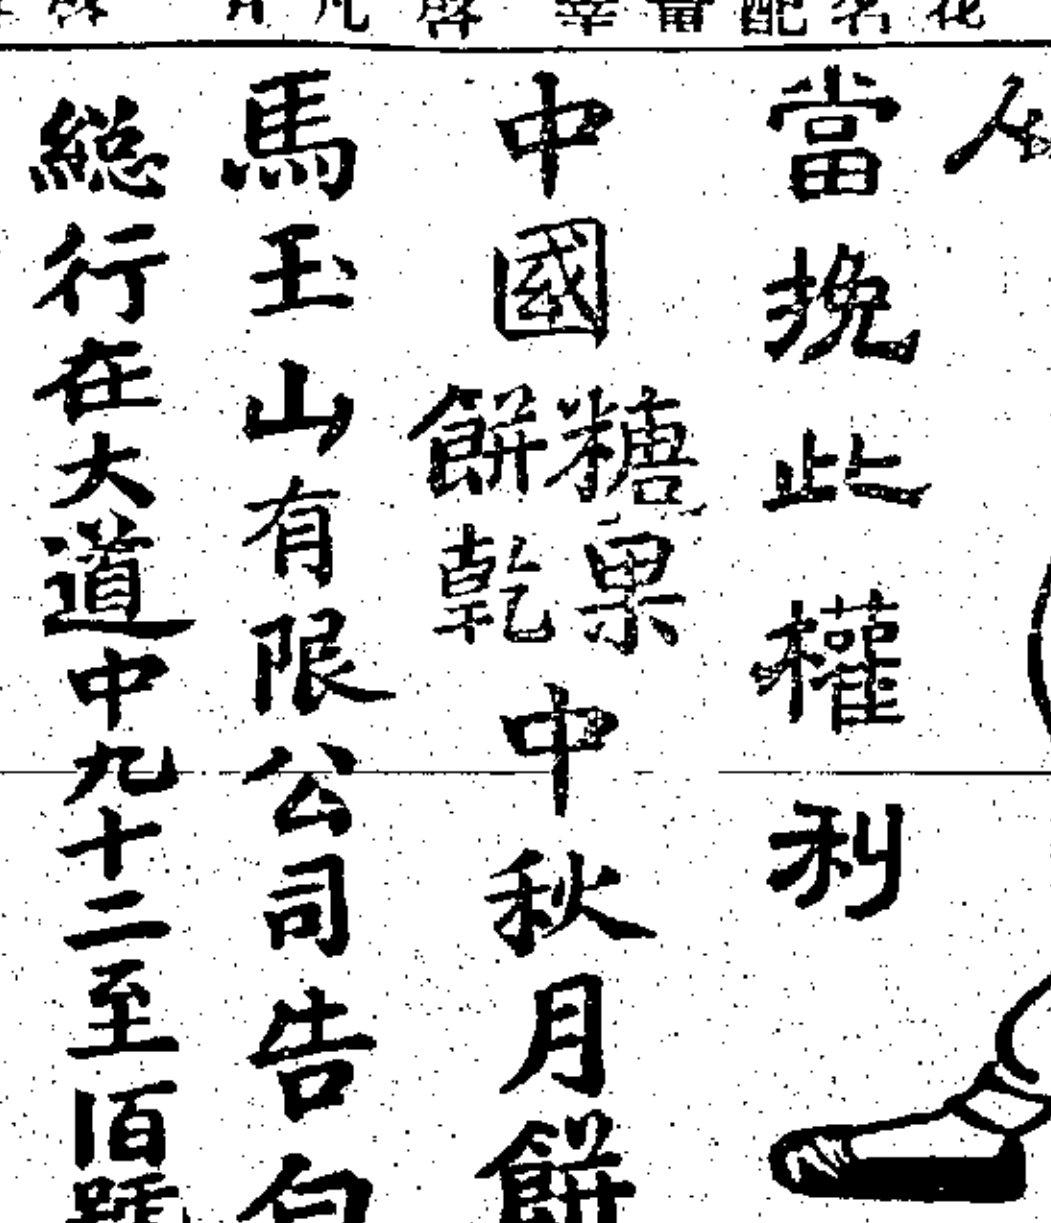 當挽此權利
中國糖果餅乾中秋月餅
馬玉山有限公司告白
総行在大道中九十二至佰號